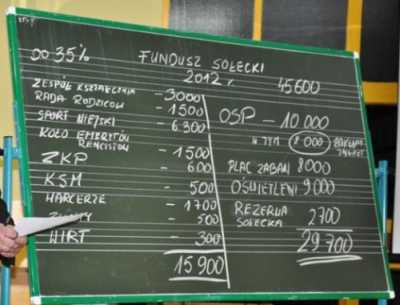 DO 35%
FUNDUSZ SOŁECKI
2012 r.
45600
ZESPÓŁ KSZTAŁCENIA - 3000
RADA RODZICÓW - 1500
SPORT WIEJSKI - 6.300
KOŁO EMERYTÓW
RENCISTÓW - 1500
ZKP - 600
KSM - 500
HARCERZE - 1700
- 500
WIRT - 300
15 900
OSP - 10 000
W TYM 8 000
PLAC ZABAW 8000
OŚWIETLENI 9000
REZERWA
SOŁECKA 2700
29.700